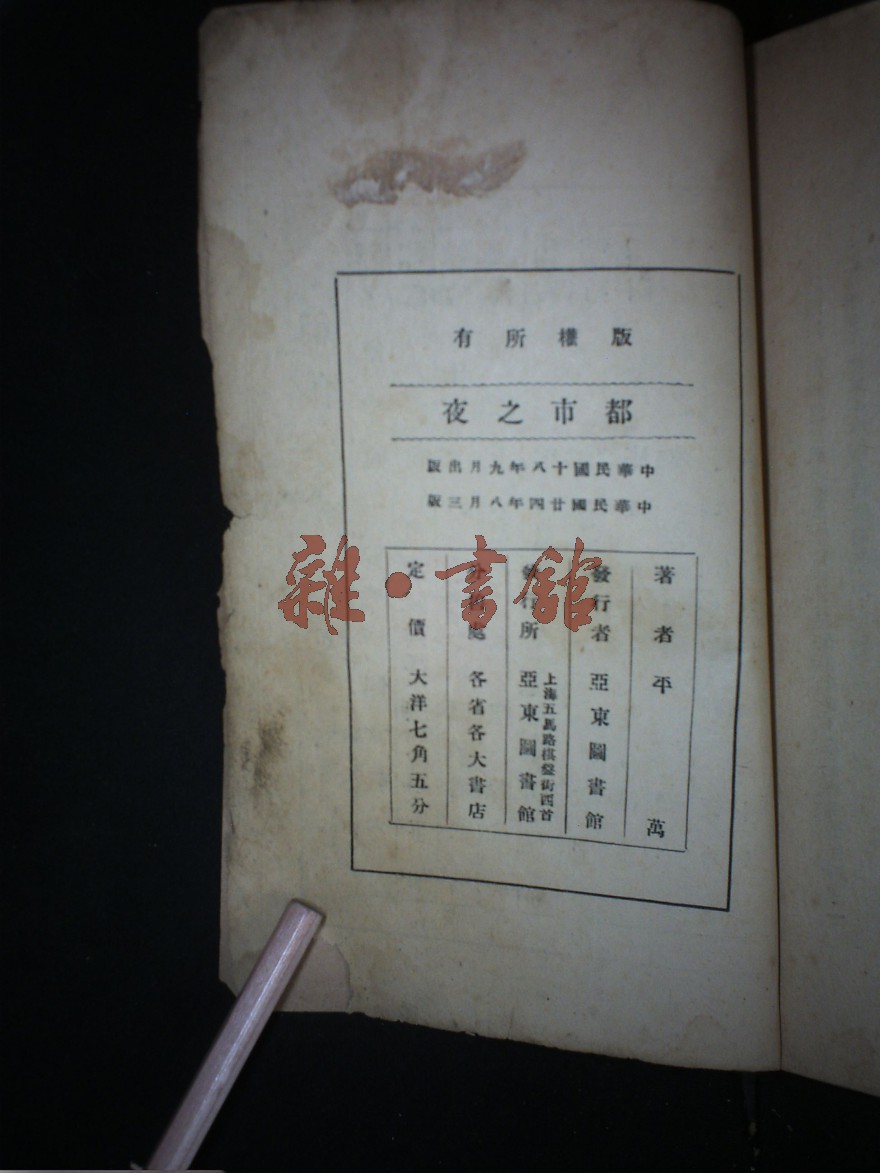 版權所有
都市之夜
中華民國十八年九月出版
中華民國廿四年八月三版
著者 平萬
發行者 亞東圖書館
發行所 上海五馬路棋盤街西首
亞東圖書館
分售處 各省各大書店
定價 大洋七角五分
雜·書館